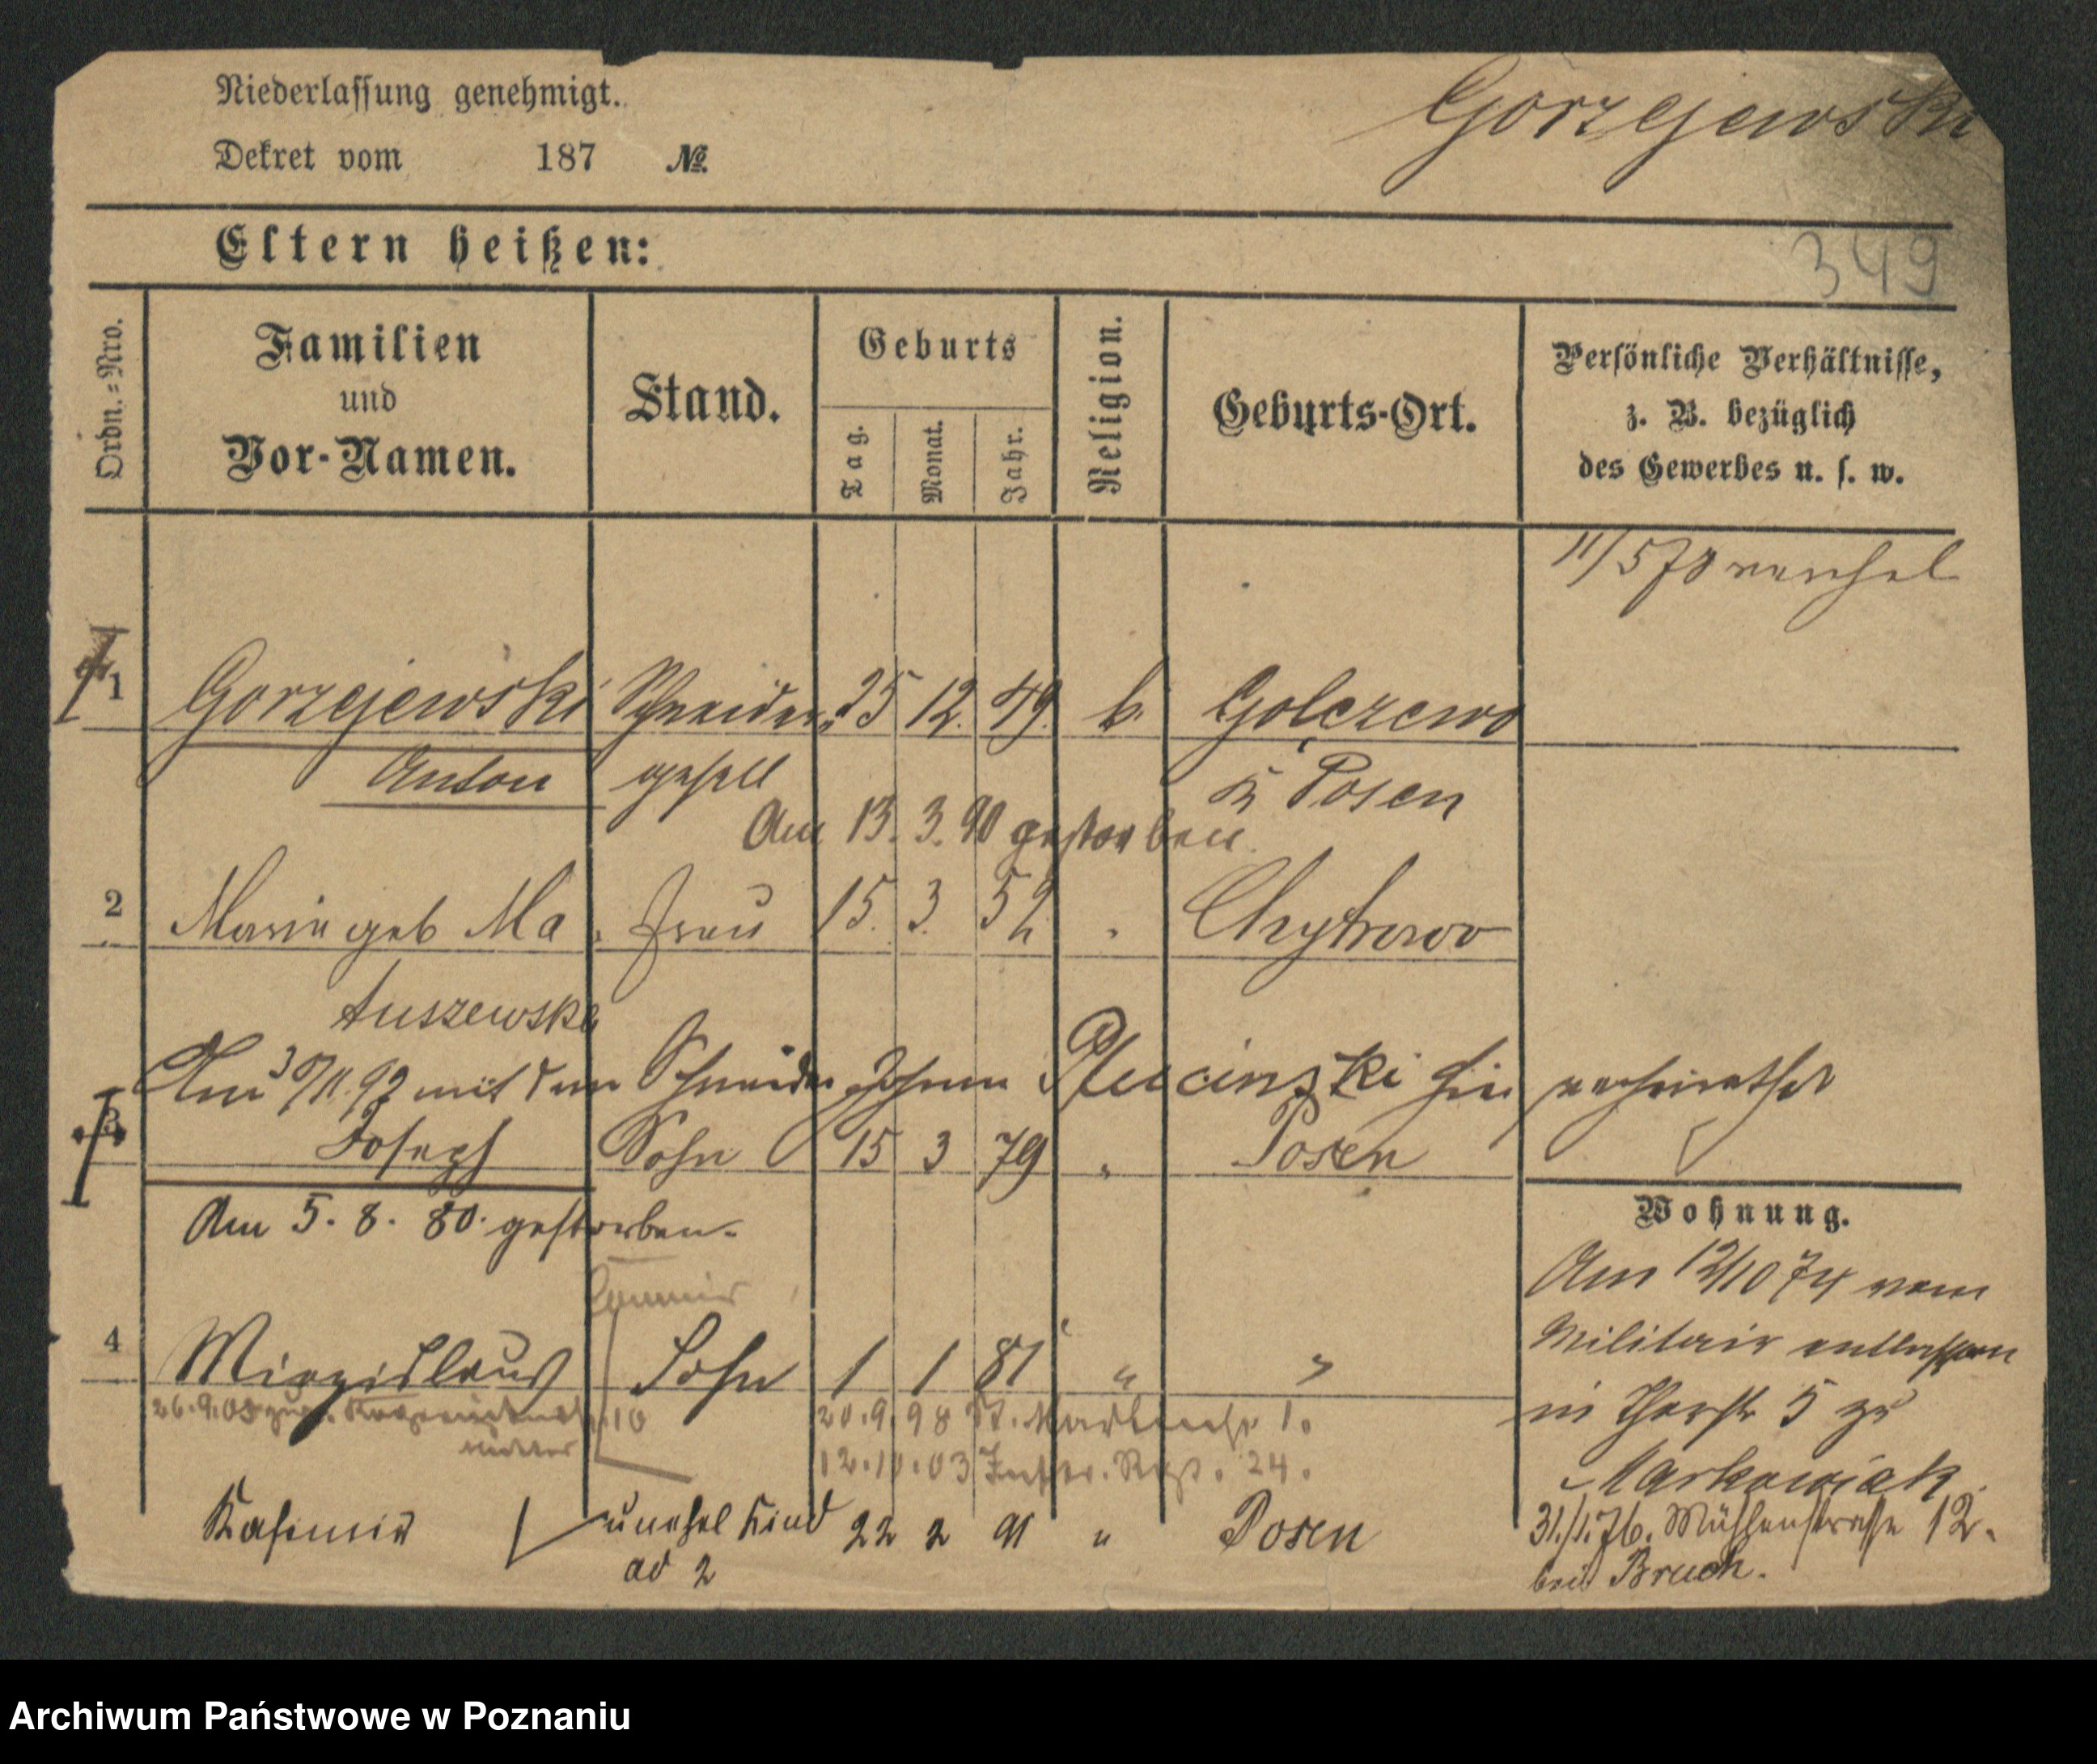 Niederlassung genehmigt.
Gorzejewski
Dekret vom 187 №.
Eltern heißen:
349
Ordn.=Nro.
Familien
und
Vor-Namen.
Stand.
Geburts
Tag.
Monat.
Jahr.
Religion.
Geburts-Ort.
Persönliche Verhältnisse,
z. B. bezüglich
des Gewerbes u. s. w.
11/5 78 verehel
1 Gorzejewski Schneider 25 12. 49. k. Golezewo
Anton gesell Posen
Am 13. 3. 90 gestorben.
2 Marie geb Ma Frau 15. 3. 52 Chytrowo
tuszewska
Am 30/11. 92 mit dem Schneider Johann Plucinski hier verheirathet
3 Joseph Sohn 15 3 79 " Posen
Am 5. 8. 80. gestorben.
Wohnung.
Am 12/10 74 vom
4 Miezislaus Sohn 1 1 81 " "
Militair entlassen
26.9.05 10 20.9.98 St. 1.
in Thorstr 5 zu
12.10.03 Inftr. Regt. 24.
Markowiak.
Kasimir unehel Kind 22 2 91 " Posen
ad 2
31./1.76. Mühlenstrasse 12.
bei Bruch.
Archiwum Państwowe w Poznaniu